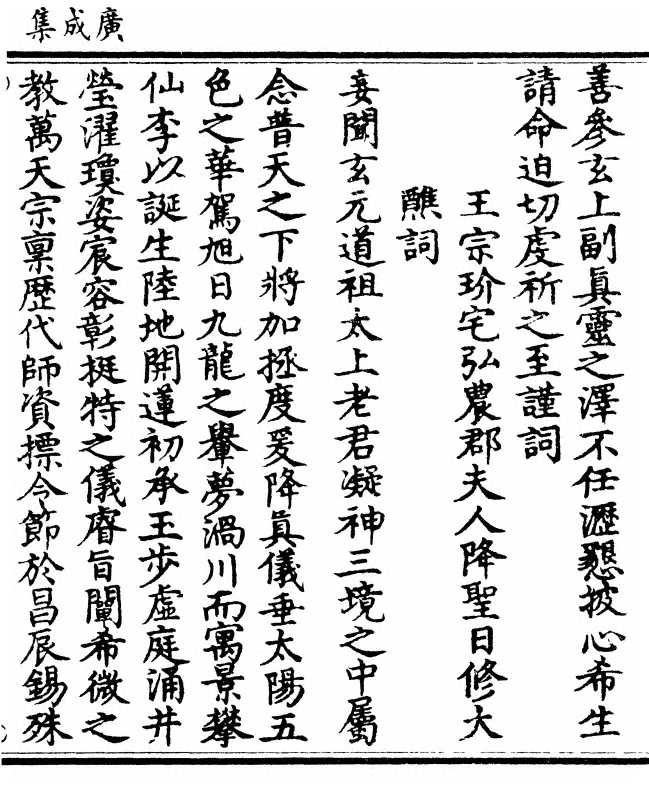 廣成集
善參玄上副眞靈之澤不任瀝懇披心希生
請命迫切虔祈之至謹詞
王宗玠宅弘農郡夫人降聖日修大
醮詞
妾聞玄元道祖太上老君凝神三境之中屬
念普天之下將加拯度爰降眞儀垂太陽五
色之華駕旭日九龍之轝夢渦川而寓景攀
仙李以誕生陸地開蓮初承玉步虛庭涌井
瑩濯瓊姿宸容彰挺特之儀睿旨闡希微之
教萬天宗禀歷代師資摽令節於昌辰錫殊